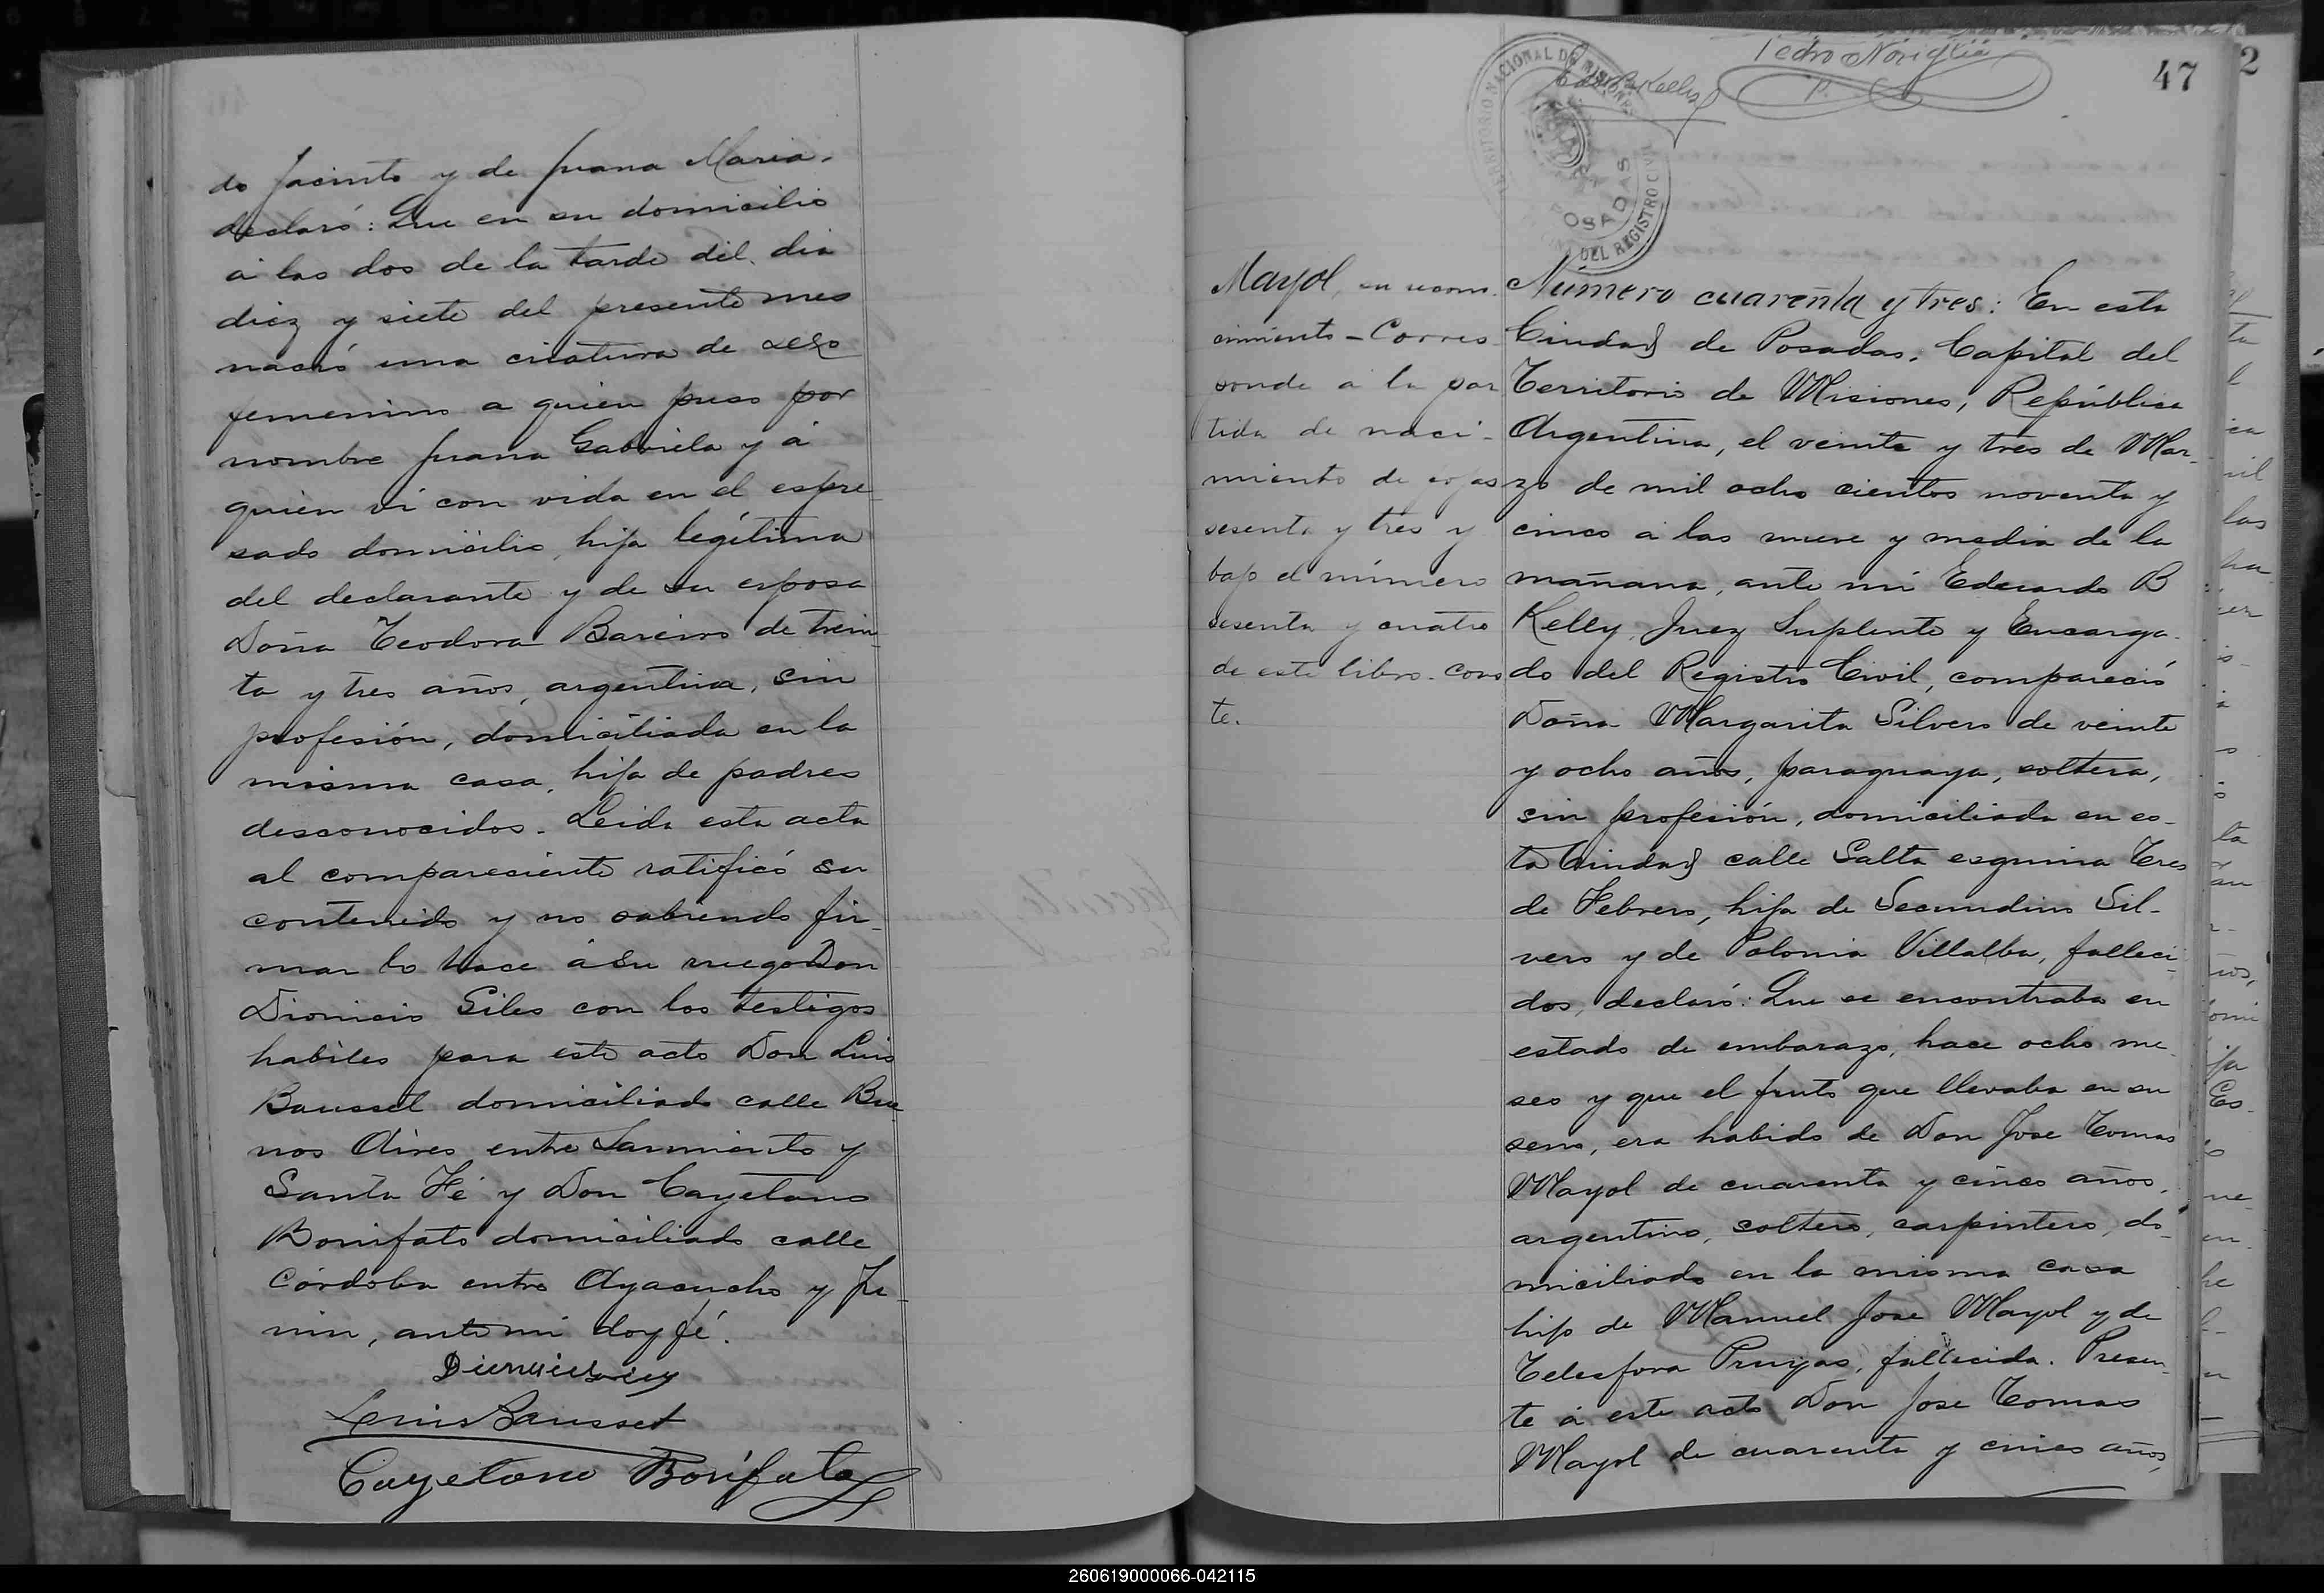 do Jacinto y de Juana Maria.
declaró: Que en su domicilio
á las dos de la tarde del dia
diez y siete del presente mes
nació una criatura de sexo
femenino a quien puso por
nombre Juana Gabriela y á
quien ví con vida en el espre
sado domicilio, hija legítima
del declarante y de su esposa
Doña Teodora Bareiro de trein
ta y tres años, argentina, sin
profesión, domiciliada en la
misma casa, hija de padres
desconocidos. Leida esta acta
al compareciente ratificó su
contenido y no sabiendo fir-
mar lo hace á su ruego Don
Dionicio Giles con los testigos
habiles para este acto Don Luis
Bausset domiciliado calle Bue
nos Aires entre Sarmiento y
Santa Fé y Don Cayetano
Bonifato domiciliado calle
Córdoba entre Ayacucho y Ju-
nin, ante mi doy fé.
Luis Bausset
Cayetano Bonifato
Pedro Noriglia
47
2
TERRITORIO NACIONAL DE MISIONES
POSADAS
DEL REGISTRO CIVIL
Mayol, su recono-
cimiento - Corres
ponde á la par
tida de naci-
miento de fojas
sesenta y tres y
bajo el número
sesenta y cuatro
de este libro. Cons
te.
Número cuarenta y tres: En esta
Ciudad de Posadas, Capital del
Territorio de Misiones, República
Argentina, el veinte y tres de Mar-
zo de mil ocho cientos noventa y
cinco á las nueve y media de la
mañana, ante mi Eduardo B
Kelly, Juez Suplente y Encarga-
do del Registro Civil, compareció
Doña Margarita Silvero de veinte
y ocho años, paraguaya, soltera,
sin profesión, domiciliada en es-
ta Ciudad calle Salta esquina Tres
de Febrero, hija de Secundino Sil-
vero y de Polonia Villalba, falleci-
dos, declaró: Que se encontraba en
estado de embarazo, hace ocho me-
ses y que el fruto que llevaba en su
seno, era habido de Don Jose Tomas
Mayol de cuarenta y cinco años,
argentino, soltero, carpintero, do-
miciliado en la misma casa
hijo de Manuel Jose Mayol y de
Telesfora fallecida. Presen-
te á este acto Don Jose Tomas
Mayol de cuarenta y cinco años,
260619000066-042115